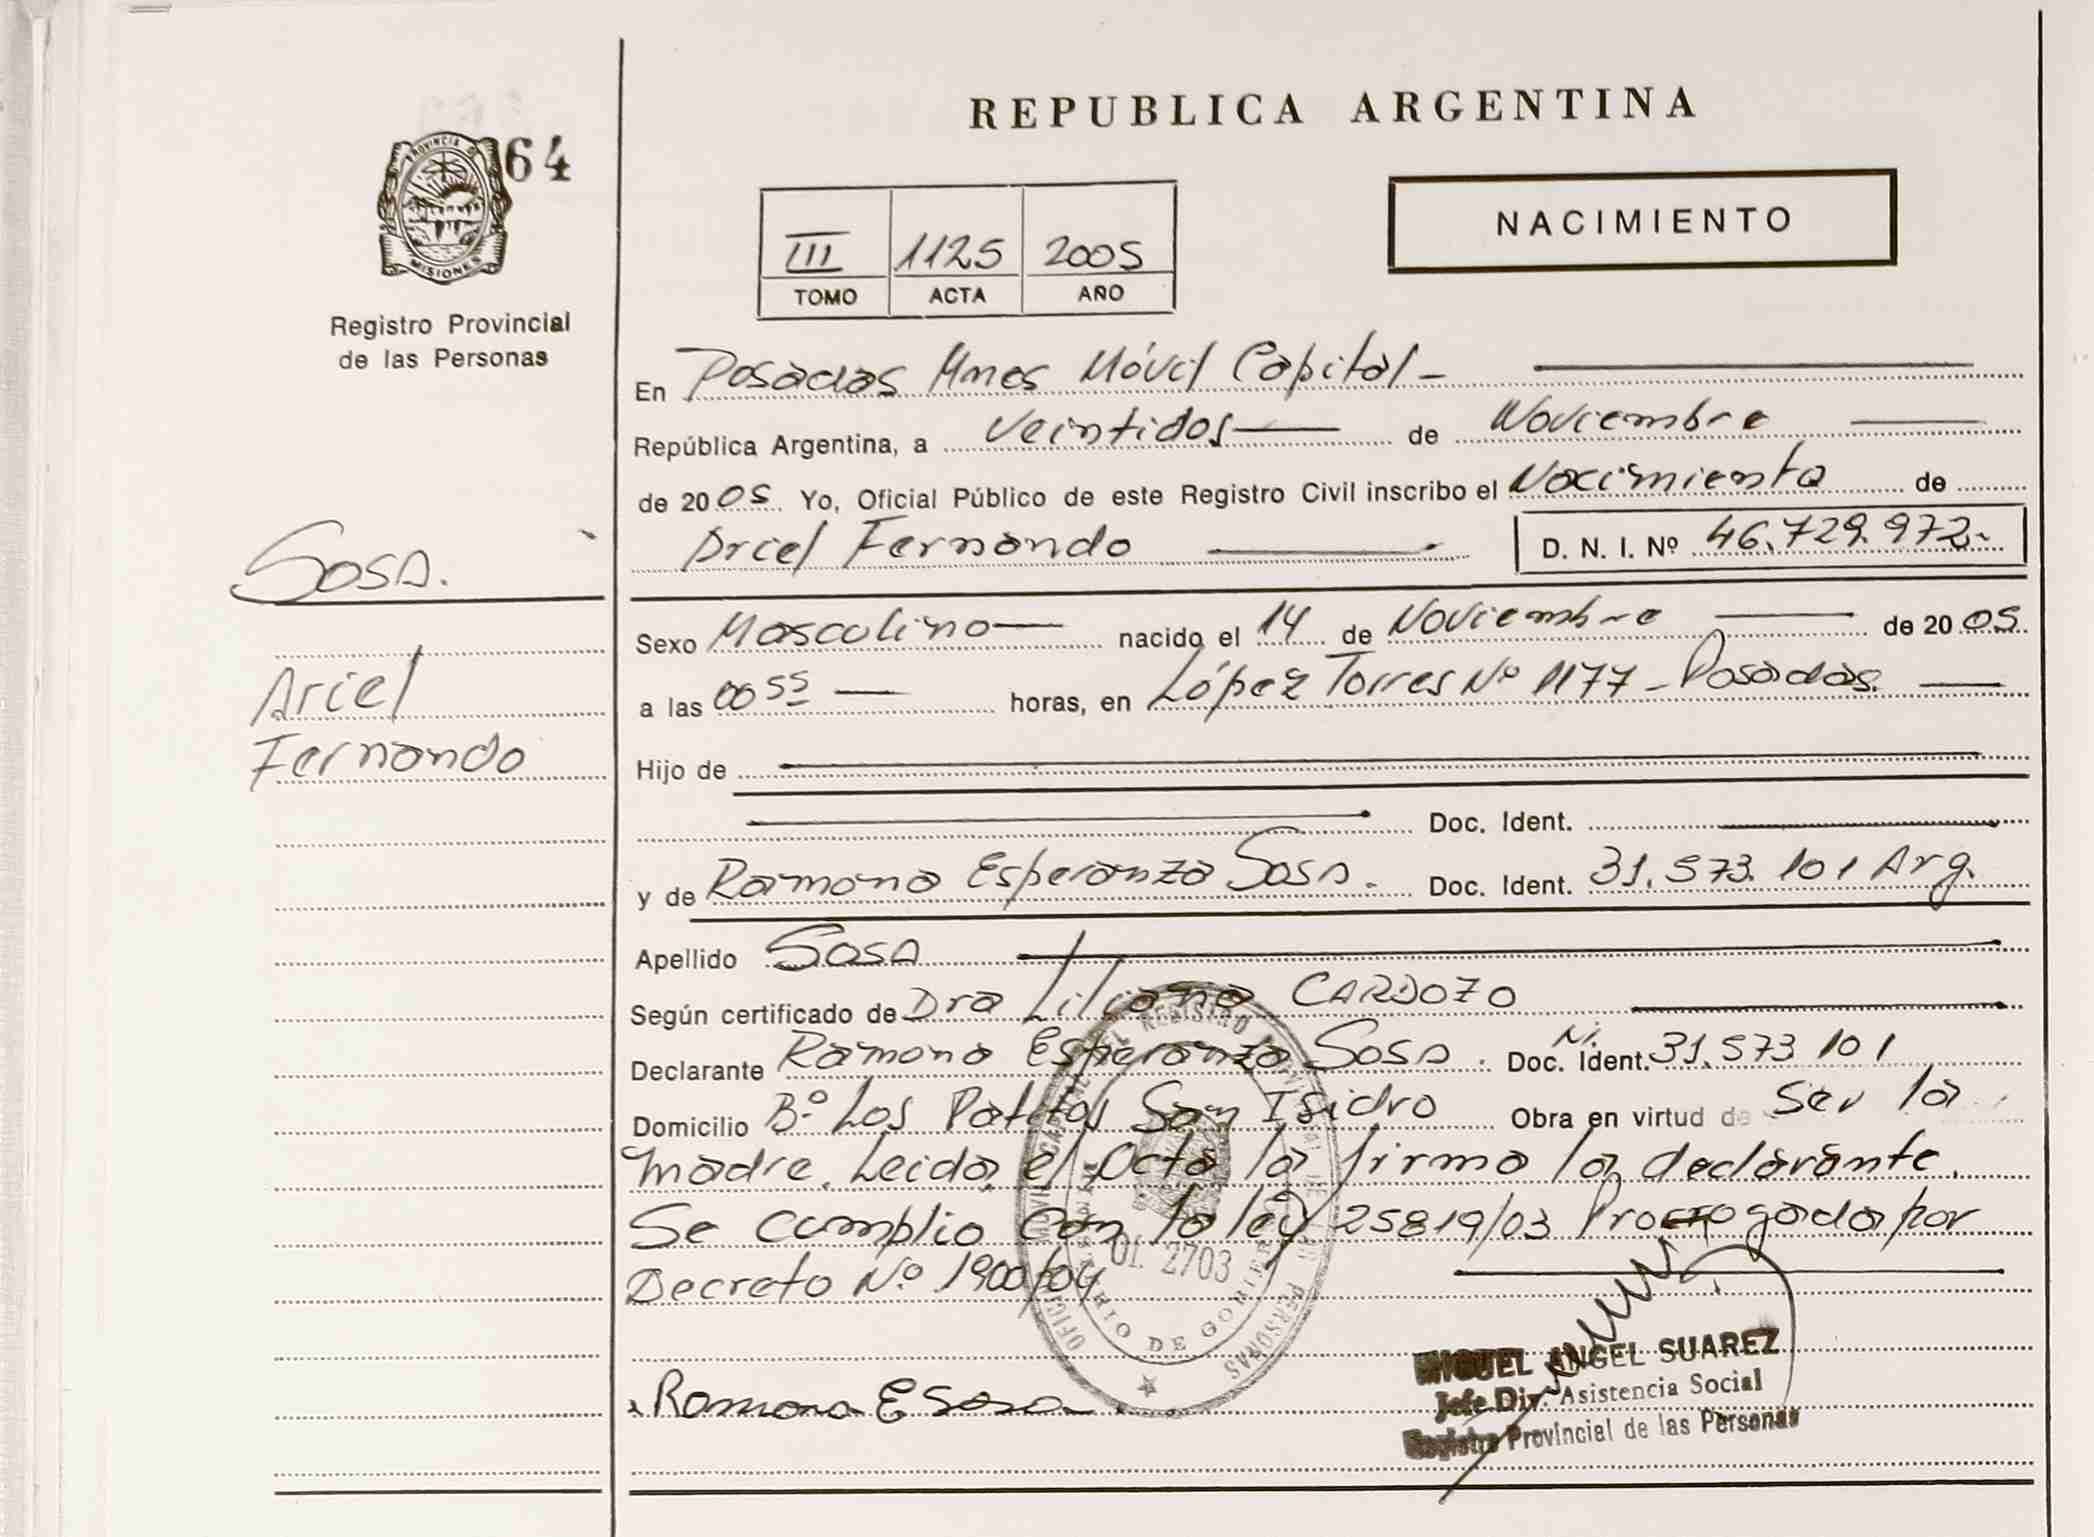 REPUBLICA ARGENTINA
PROVINCIA D
MISIONES
64
Registro Provincial
de las Personas
III 1125 2005
TOMO ACTA AÑO
NACIMIENTO
En Posadas Mnes Móvil Capital -
República Argentina, a Veintidos de Noviembre
de 2005. Yo, Oficial Público de este Registro Civil inscribo el Nacimiento de
Ariel Fernando D. N. I. Nº 46.729.972.-
Sosa.
Ariel
Fernando
Sexo Masculino nacido el 14 de Noviembre de 2005.
a las 00 55 horas, en López Torres Nº 1177 - Posadas.
Hijo de
Doc. Ident.
y de Ramona Esperanza Sosa. Doc. Ident. 31.573.101 Arg.
Apellido Sosa
Según certificado de Dra Liliana CARDOZO
Declarante Ramona Esperanza Sosa. Doc. Ident. 31.573 101
Domicilio Bº Los Patitos San Isidro Obra en virtud de Ser la
madre. Leida el Acta la firma la declarante.
Se cumplio con la ley 25819/03 Prorrogada por
Decreto Nº 1900/04
OF. 2703
RIO DE GOBIER
Ramona E Sosa
MIGUEL ANGEL SUAREZ
Jefe Div. Asistencia Social
Registro Provincial de las Personas